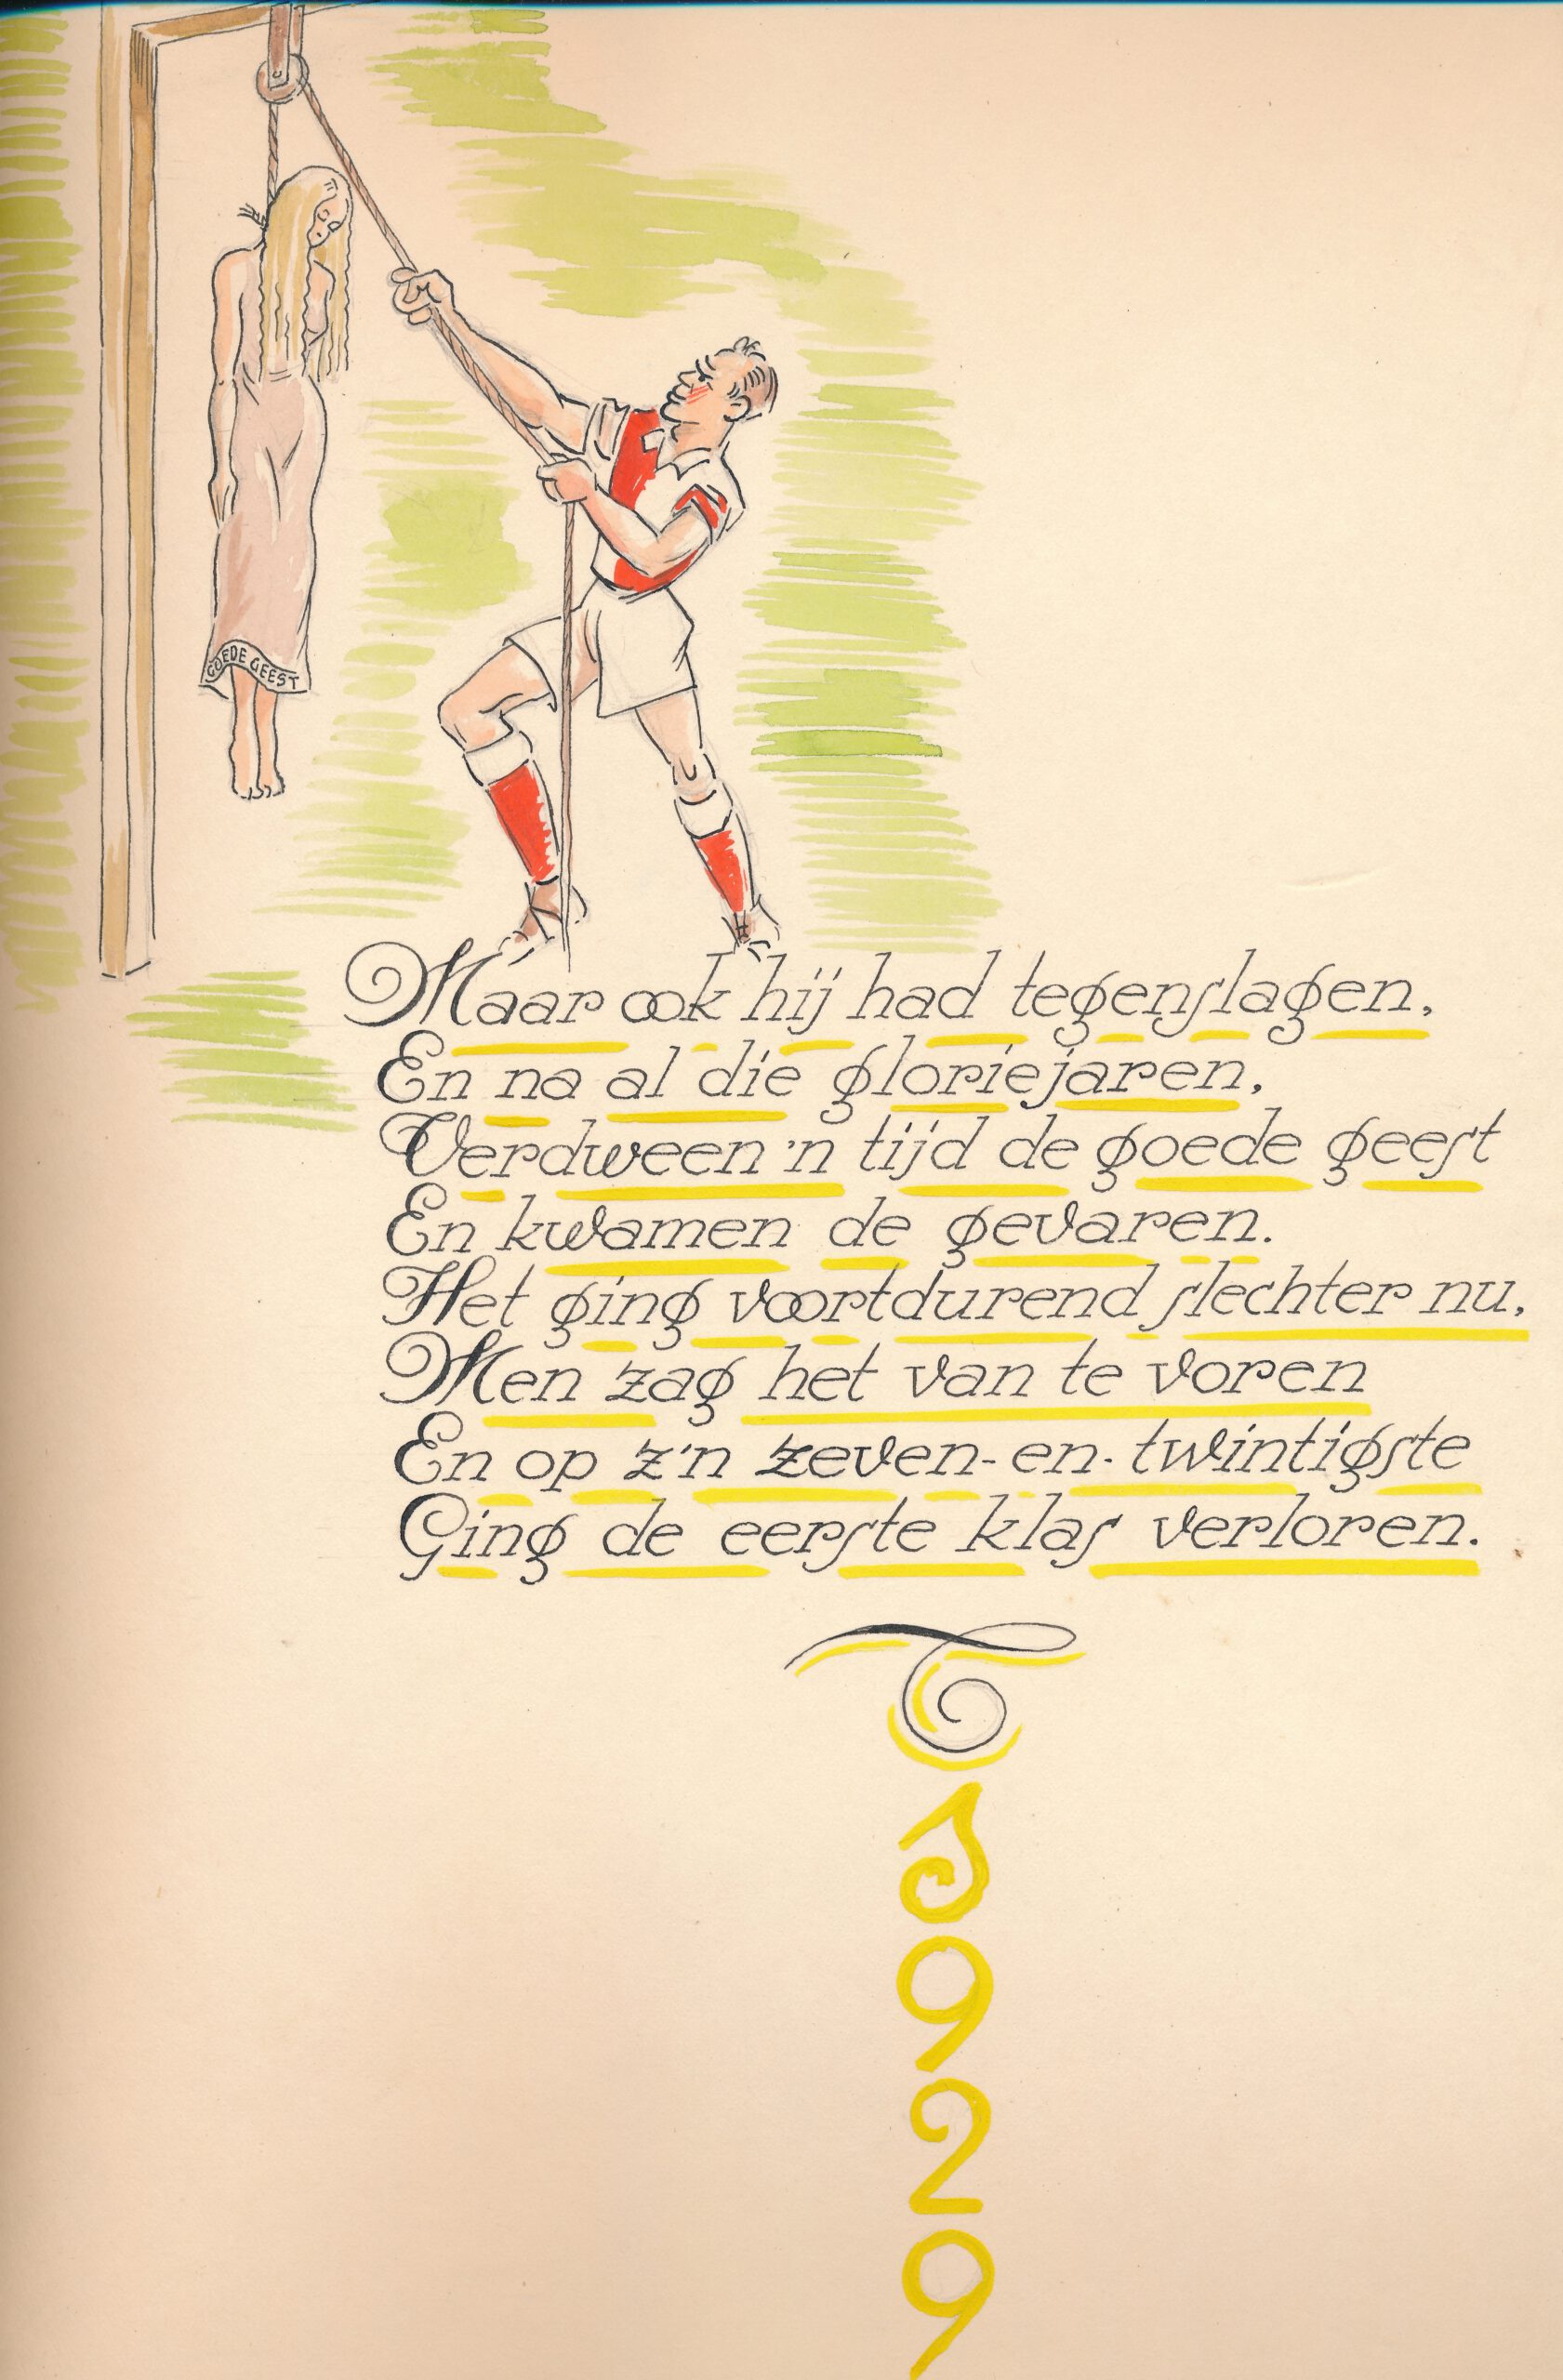 GOEDE GEEST
Maar ook hij had tegenslagen,
En na al die gloriejaren,
Verdween 'n tijd de goede geest
En kwamen de gevaren.
Het ging voortdurend slechter nu,
Men zag het van te voren
En op z'n zeven-en-twintigste
Ging de eerste klas verloren.
1929